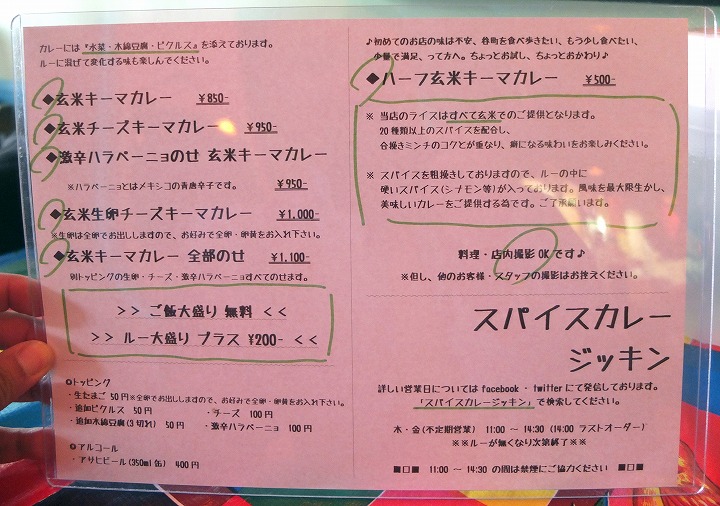 カレーには『水菜・木綿豆腐・ピクルス』を添えております。
ルーに混ぜて変化する味も楽しんでください。
◆玄米キーマカレー ¥850-
◆玄米チーズキーマカレー ¥950-
◆激辛ハラペーニョのせ 玄米キーマカレー
※ハラペーニョとはメキシコの青唐辛子です。 ¥950-
◆玄米生卵チーズキーマカレー ¥1,000-
※生卵は全卵でお出ししますので、お好みで全卵・卵黄をお入れ下さい。
◆玄米キーマカレー 全部のせ ¥1,100-
別トッピングの生卵・チーズ・激辛ハラペーニョすべてのせます。
>> ご飯大盛り 無料 <<
>> ルー大盛り プラス ¥200- <<
◎トッピング
・生たまご 50円 ※全卵でお出ししますので、お好みで全卵・卵黄をお入れ下さい。
・追加ピクルス 50円 ・チーズ 100円
・追加木綿豆腐(3切れ) 50円 ・激辛ハラペーニョ 100円
◎アルコール
・アサヒビール(350ml缶) 400円
♪初めてのお店の味は不安、谷町を食べ歩きたい、もう少し食べたい、
少量で満足、って方へ。ちょっとお試し、ちょっとおかわり♪
◆ハーフ玄米キーマカレー ¥500-
※ 当店のライスはすべて玄米でのご提供となります。
20種類以上のスパイスを配合し、
合挽きミンチのコクとが重なり、癖になる味わいをお楽しみください。
※ スパイスを粗挽きしておりますので、ルーの中に
硬いスパイス(シナモン等)が入っております。風味を最大限生かし、
美味しいカレーをご提供する為です。ご了承願います。
料理・店内撮影OKです♪
※但し、他のお客様・スタッフの撮影はお控えください。
スパイスカレー
ジッキン
詳しい営業日については facebook・twitterにて発信しております。
「スパイスカレージッキン」で検索してください。
木・金(不定期営業) 11:00 〜 14:30 (14:00 ラストオーダー)
※※ルーが無くなり次第終了※※
■□■ 11:00 〜 14:30 の間は禁煙にご協力ください ■□■